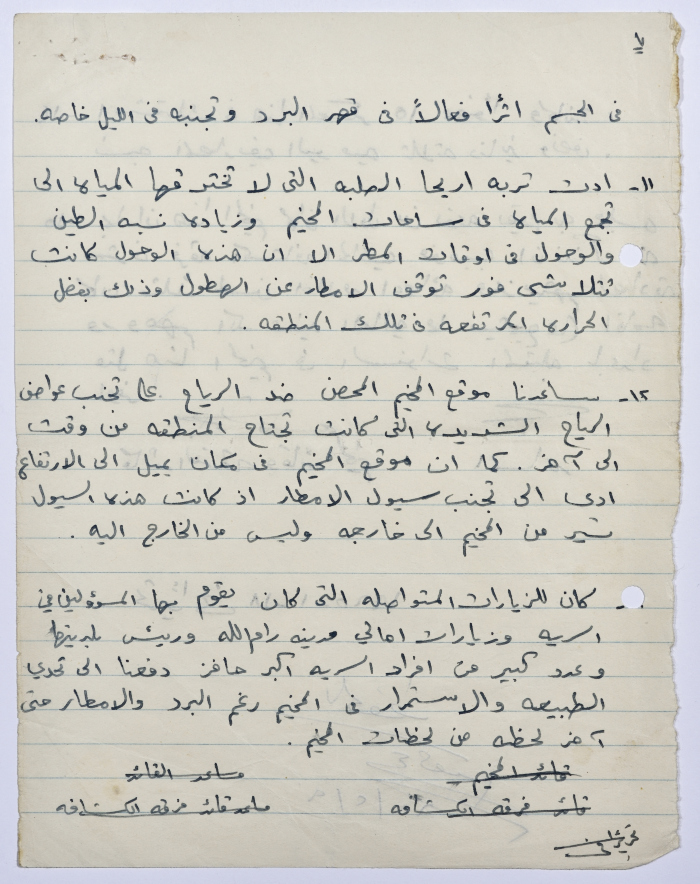 ٧
فى الجسم اثرًا فعالاً فى قهر البرد وتجنبه فى الليل خاصه.
١١- ادت تربه اريحا الصلبه التى لا تخترقها المياه الى
تجمع المياه فى ساحات المخيم وزياده نسبه الطين
والوحول فى اوقات المطر الا ان هذه الوحول كانت
تتلاشى فور توقف الامطار عن الهطول وذلك بفضل
الحراره المرتفعه فى تلك المنطقه .
١٢- ساعدنا موقع المخيم المحصن ضد الرياح على تجنب عواصف
الرياح الشديده التى كانت تجتاح المنطقه من وقت
الى آخر . كما ان موقع المخيم فى مكان يميل الى الارتفاع
ادى الى تجنب سيول الامطار اذ كانت هذه السيول
تسير من المخيم الى خارجه وليس من الخارج اليه .
كان للزيارات المتواصله التى كان يقوم بها المسؤولين فى
السريه وزيارات اهالي مدينه رام الله ورئيس بلديتها
وعدد كبير من افراد السريه اكبر حافز دفعنا الى تحدي
الطبيعه والاستمرار فى المخيم رغم البرد والامطار حتى
آخر لحظه من لحظات المخيم .
قائد المخيم مساعد القائد
قائد فرقه الكشافه مساعد قائد فرقه الكشافه